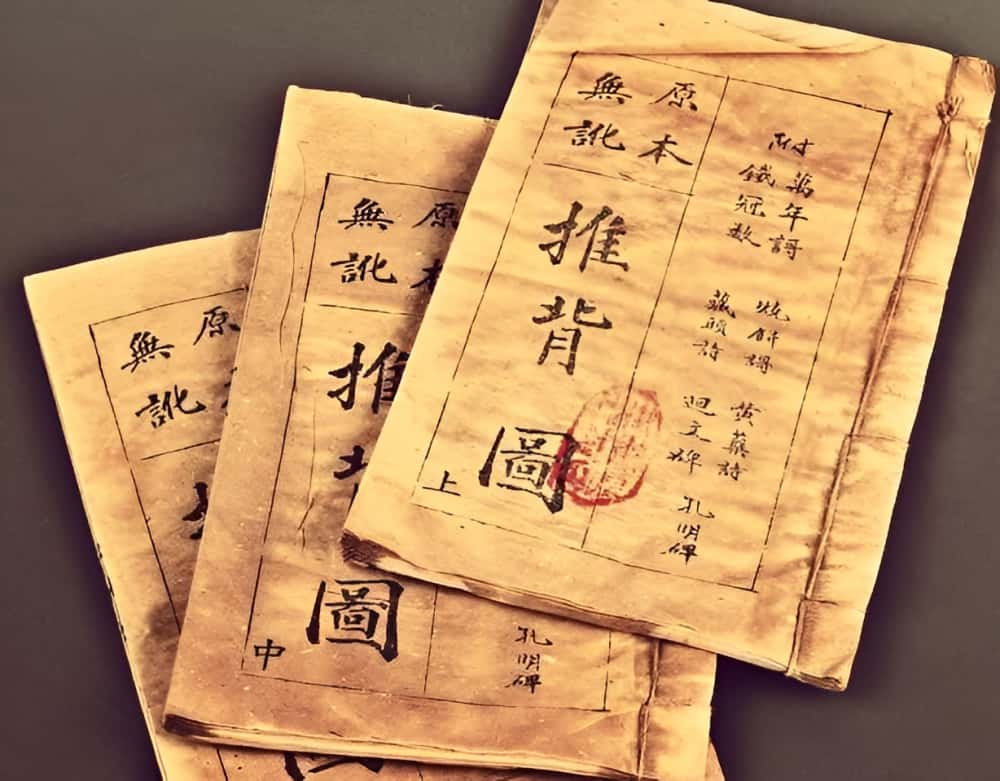 附
萬年謌
鐵冠数
燒餅謌
藏頭詩
黄蘗詩
迴文碑
孔明碑
原本
無訛
推背圖
上
孔明碑
原本
無訛
推背圖
中
原
無訛